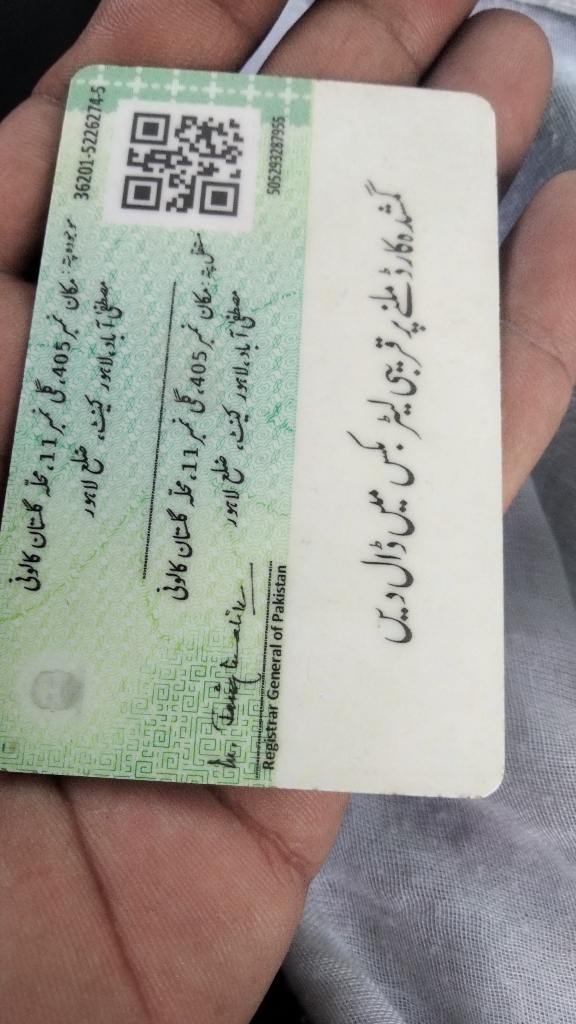 36201-5226274-5
موجودہ پتہ: مکان نمبر 405، گلی نمبر 11، محلہ گلستان کالونی
مصطفیٰ آباد، لاہور کینٹ، ضلع لاہور
مستقل پتہ: مکان نمبر 405، گلی نمبر 11، محلہ گلستان کالونی
مصطفیٰ آباد، لاہور کینٹ، ضلع لاہور
505293287955
Registrar General of Pakistan
گمشدہ کارڈ ملنے پر قریبی لیٹر بکس میں ڈال دیں